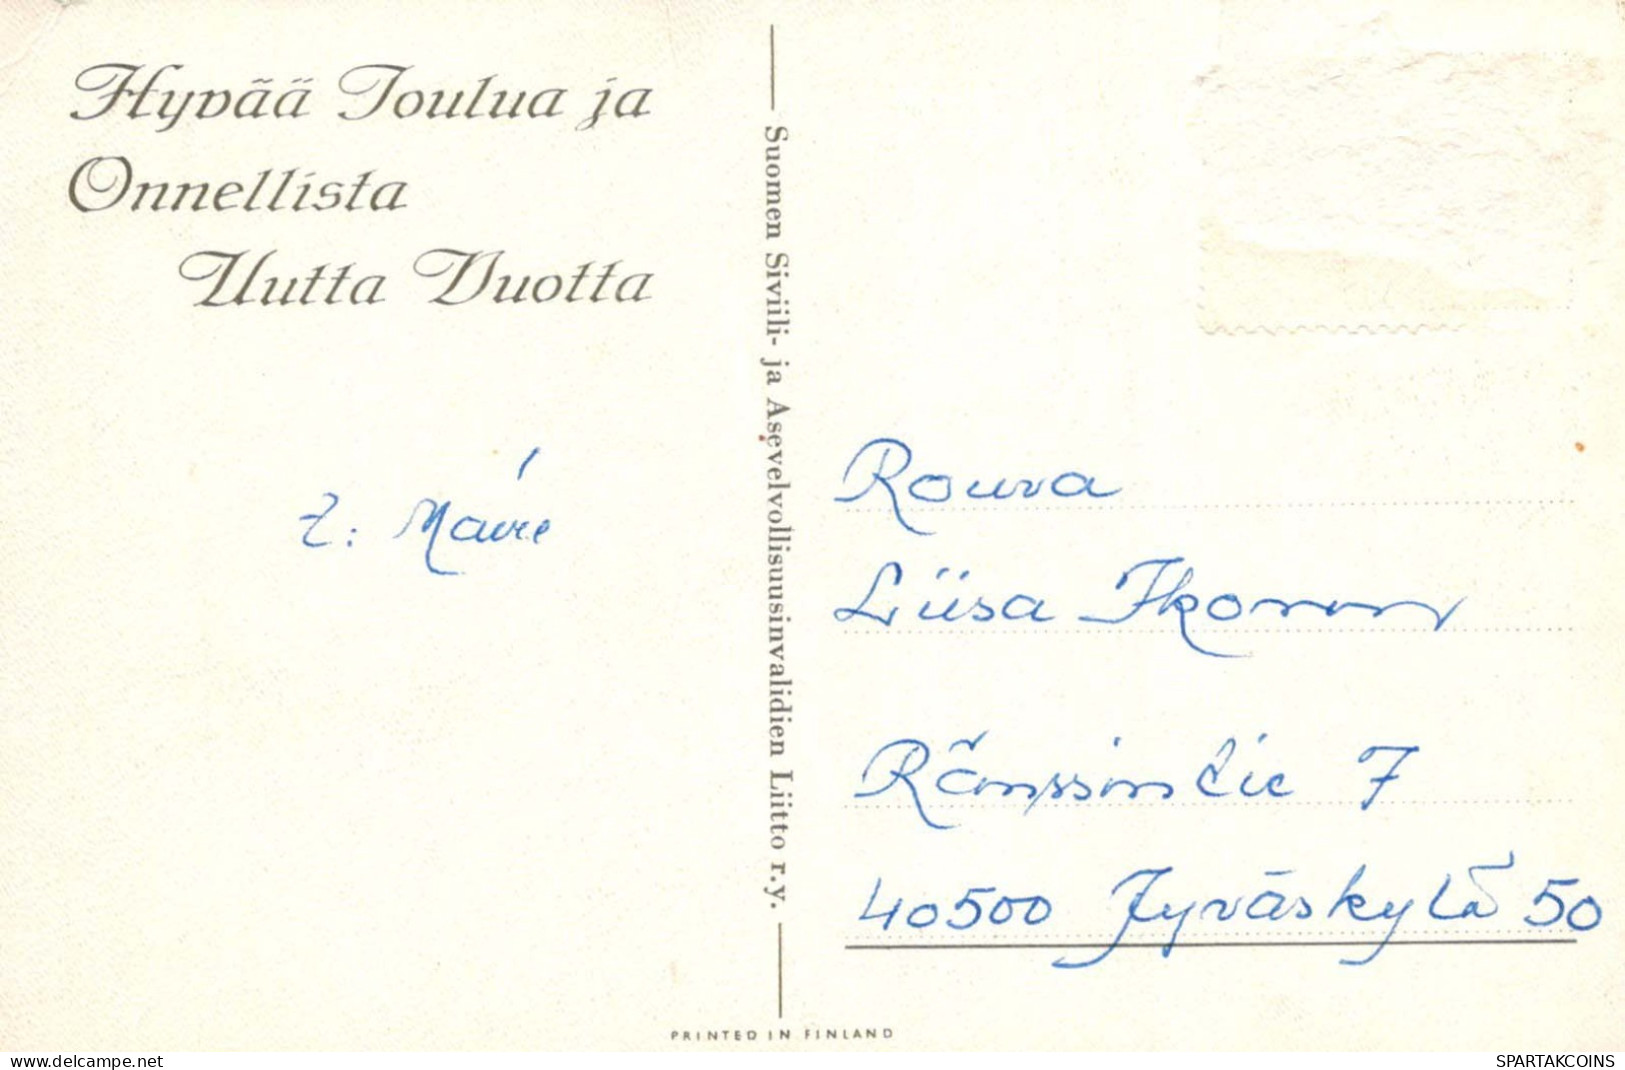 Hyvää Joulua ja
Onnellista
Uutta Vuotta
Suomen Siviili- ja Asevelvollisuusinvalidien Liitto r.y.
PRINTED IN FINLAND
Rouva
Liisa Ikonen
7
40500 Jyväskylä 50
www.delcampe.net
SPARTAKCOINS